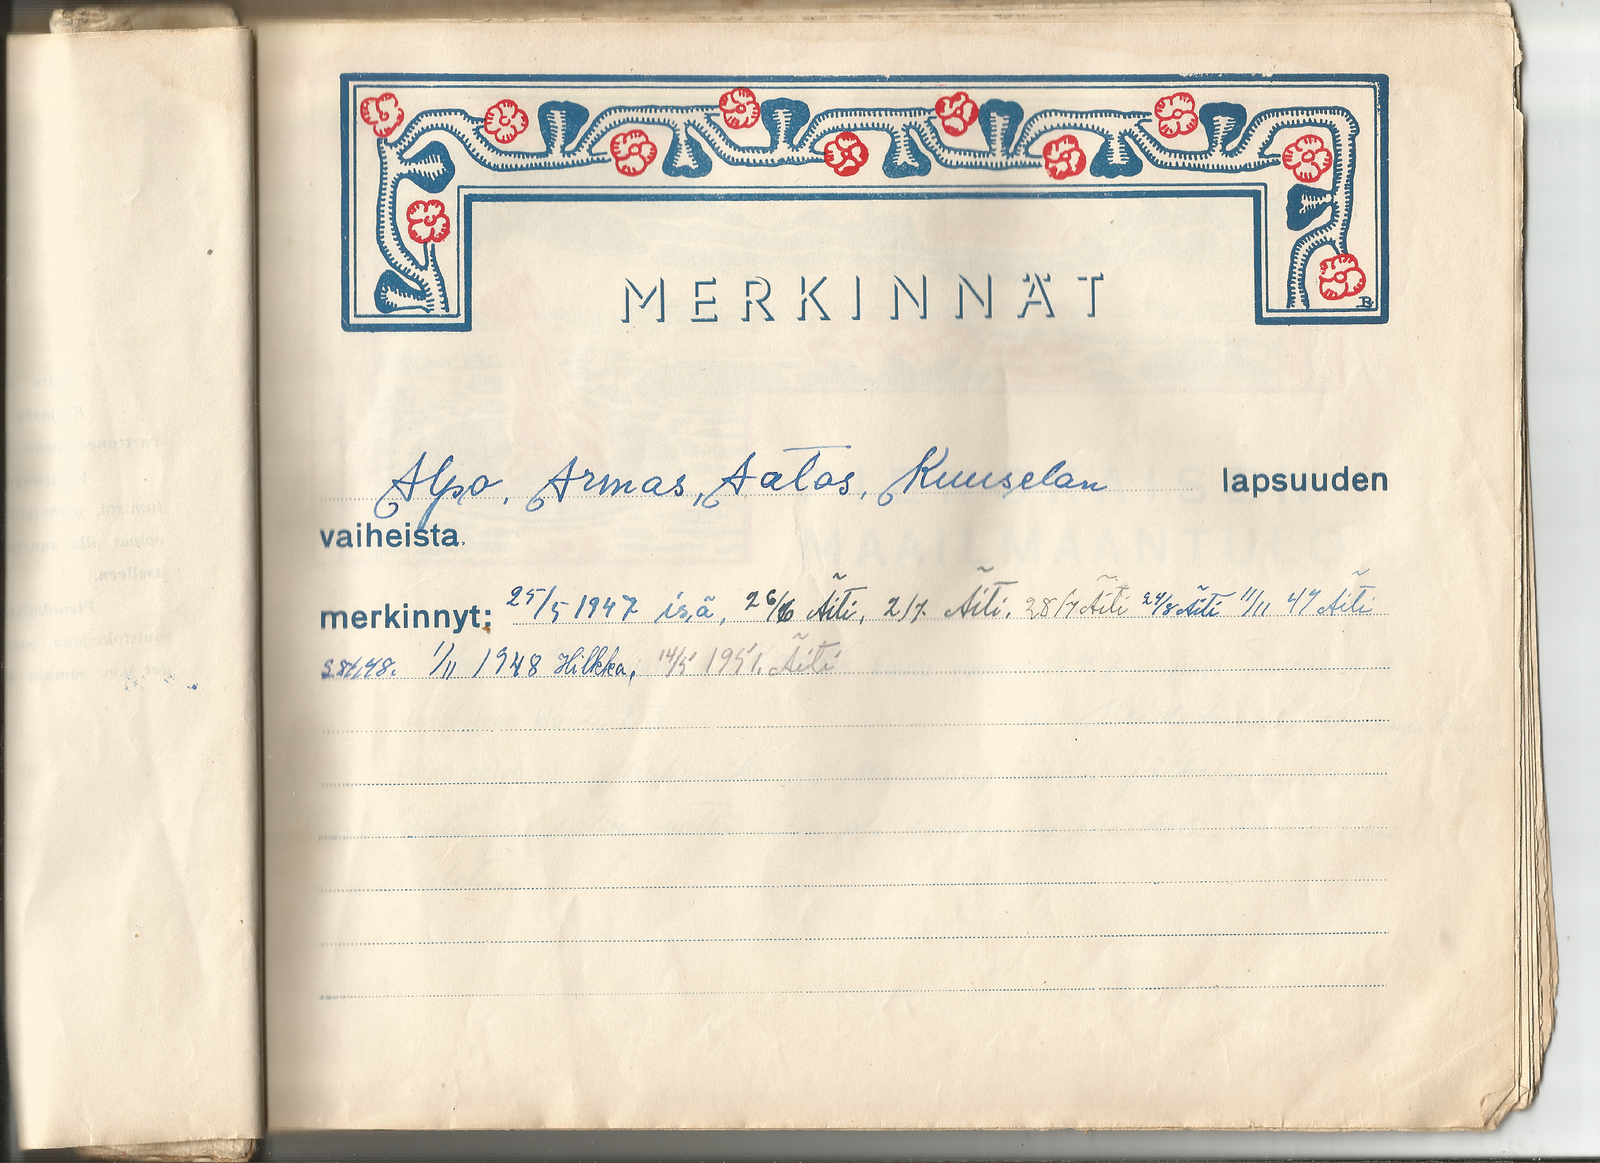 MERKINNÄT
Alpo, Armas, Aatos, Kuuselan lapsuuden
vaiheista.
merkinnyt: 25/5 1947 isä, 26/6 Äiti, 2/7 Äiti. 28/7 Äiti 24/8 Äiti 11/11 47 Äiti
1/11 1948 Hilkka, 14/5 1951. Äiti